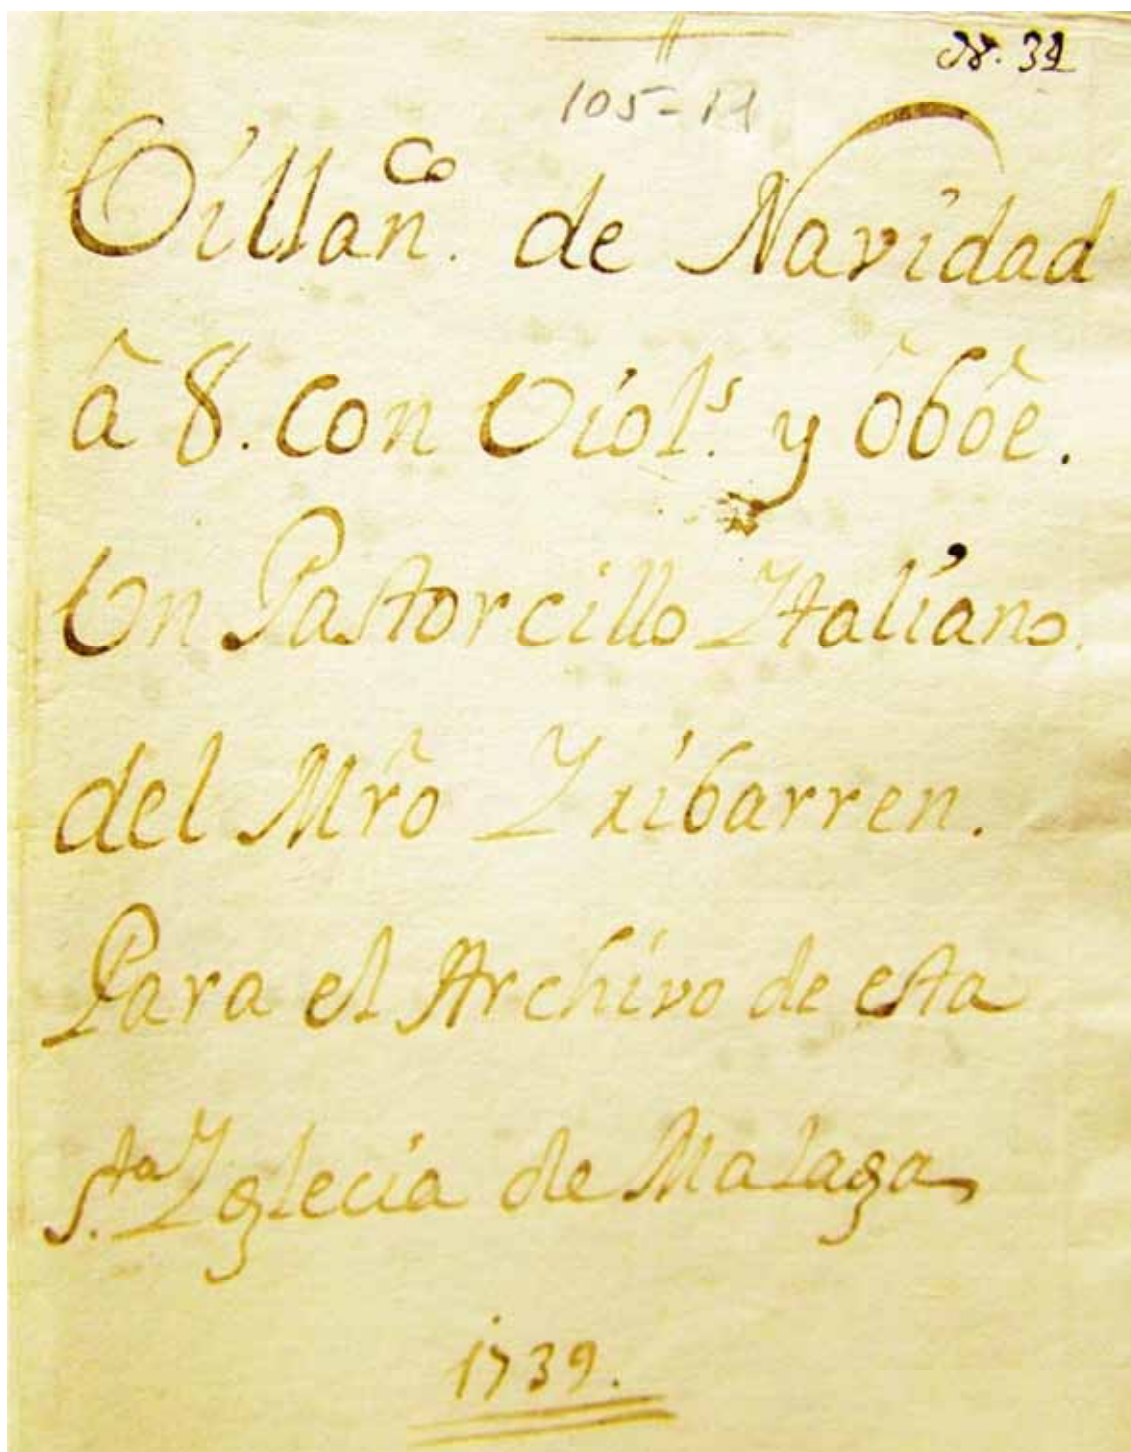 N. 34
105-14
Villan.co de Navidad
â 8. Con Viol.s y ôbôe.
Vn Pastorcillo Ytaliano.
del Mrô Yribarren.
Para el Archivo de esta
s.ta Yglecia de Malaga
1739.